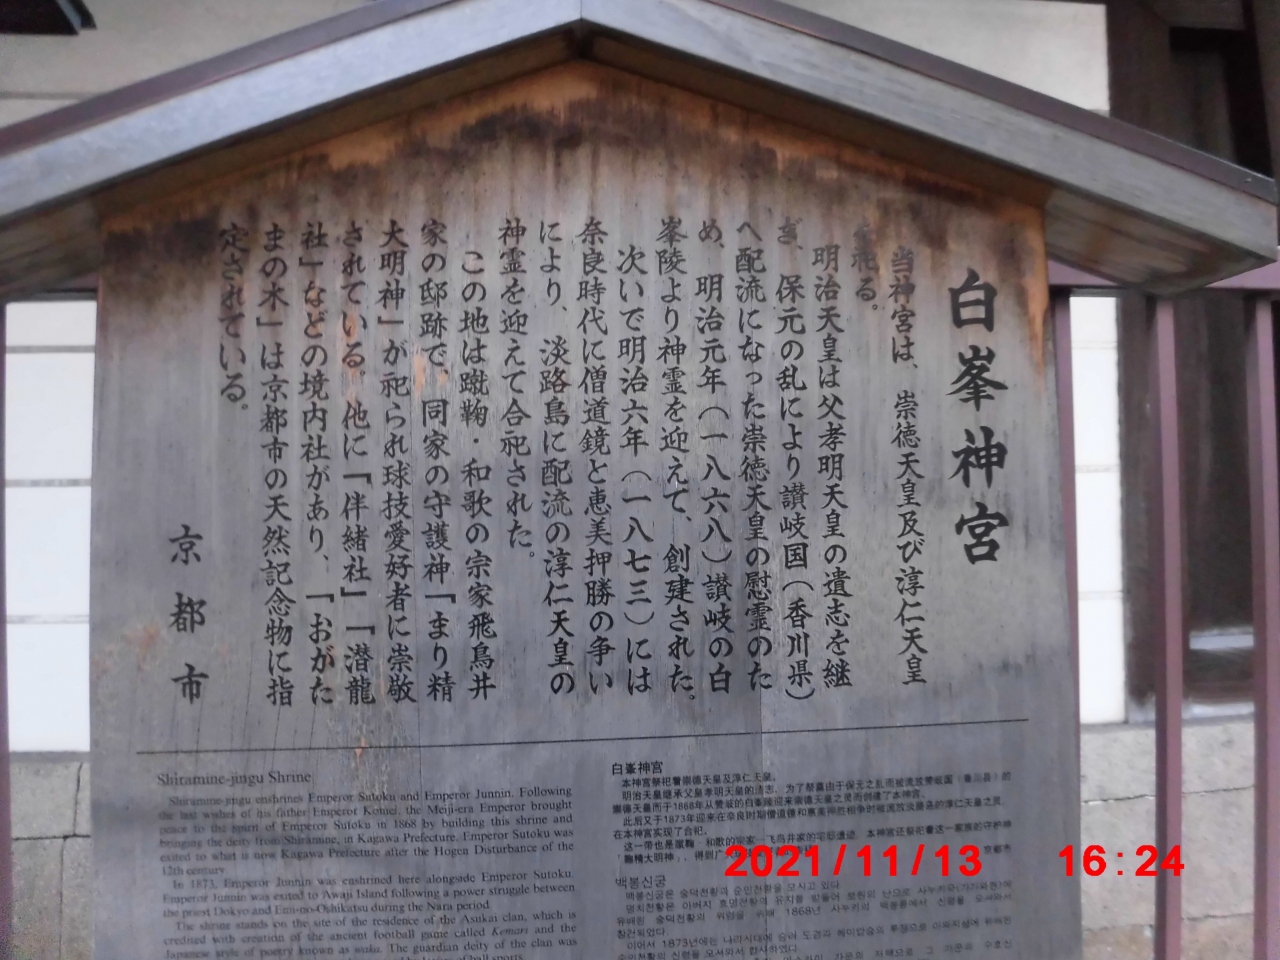 白峯神宮
当神宮は、崇徳天皇及び淳仁天皇
を祀る。
明治天皇は父孝明天皇の遺志を継
ぎ、保元の乱により讃岐国（香川県）
へ配流になった崇徳天皇の慰霊のた
め、明治元年（一八六八）讃岐の白
峯陵より神霊を迎えて、創建された。
次いで明治六年（一八七三）には
奈良時代に僧道鏡と恵美押勝の争い
により、淡路島に配流の淳仁天皇の
神霊を迎えて合祀された。
この地は蹴鞠・和歌の宗家飛鳥井
家の邸跡で、同家の守護神「まり精
大明神」が祀られ球技愛好者に崇敬
されている。他に「伴緒社」「潜龍
社」などの境内社があり、「おがた
まの木」は京都市の天然記念物に指
定されている。
京都市
Shiramine-jingu Shrine
Shiramine-jingu enshrines Emperor Sutoku and Emperor Junnin. Following
the last wishes of his father Emperor Komei, the Meiji-era Emperor brought
peace to the spirit of Emperor Sutoku in 1868 by building this shrine and
bringing the deity from Shiramine, in Kagawa Prefecture. Emperor Sutoku was
exiled to what is now Kagawa Prefecture after the Hogen Disturbance of the
12th century.
In 1873, Emperor Junnin was enshrined here alongside Emperor Sutoku.
Emperor Junnin was exiled to Awaji Island following a power struggle between
the priest Dokyo and Emi-no-Oshikatsu during the Nara period.
The shrine stands on the site of the residence of the Asukai clan, which is
credited with creation of the ancient football game called Kemari and the
Japanese style of poetry known as waka. The guardian deity of the clan was
白峯神宫
本神宫祭祀着崇德天皇及淳仁天皇。
明治天皇继承父皇孝明天皇的遗志，为了慰霊由于保元之乱而被流放赞岐国（香川县）的
崇德天皇而于1868年从赞岐的白峯陵迎来崇德天皇之灵而创建了本神宫。
此后又于1873年迎来在奈良时期僧道镜和惠美押胜相争时被流放淡路岛的淳仁天皇之灵，
在本神宫实现了合祀。
这一带也是蹴鞠・和歌的宗家--飞鸟井家的宅邸遗迹，本神宫还祭祀着这一家族的守护神
「鞠精大明神」，得到广
京都市
백봉신궁
백봉신궁은 숭덕천황과 순인천황을 모시고 있다.
2021/11/13 16:24